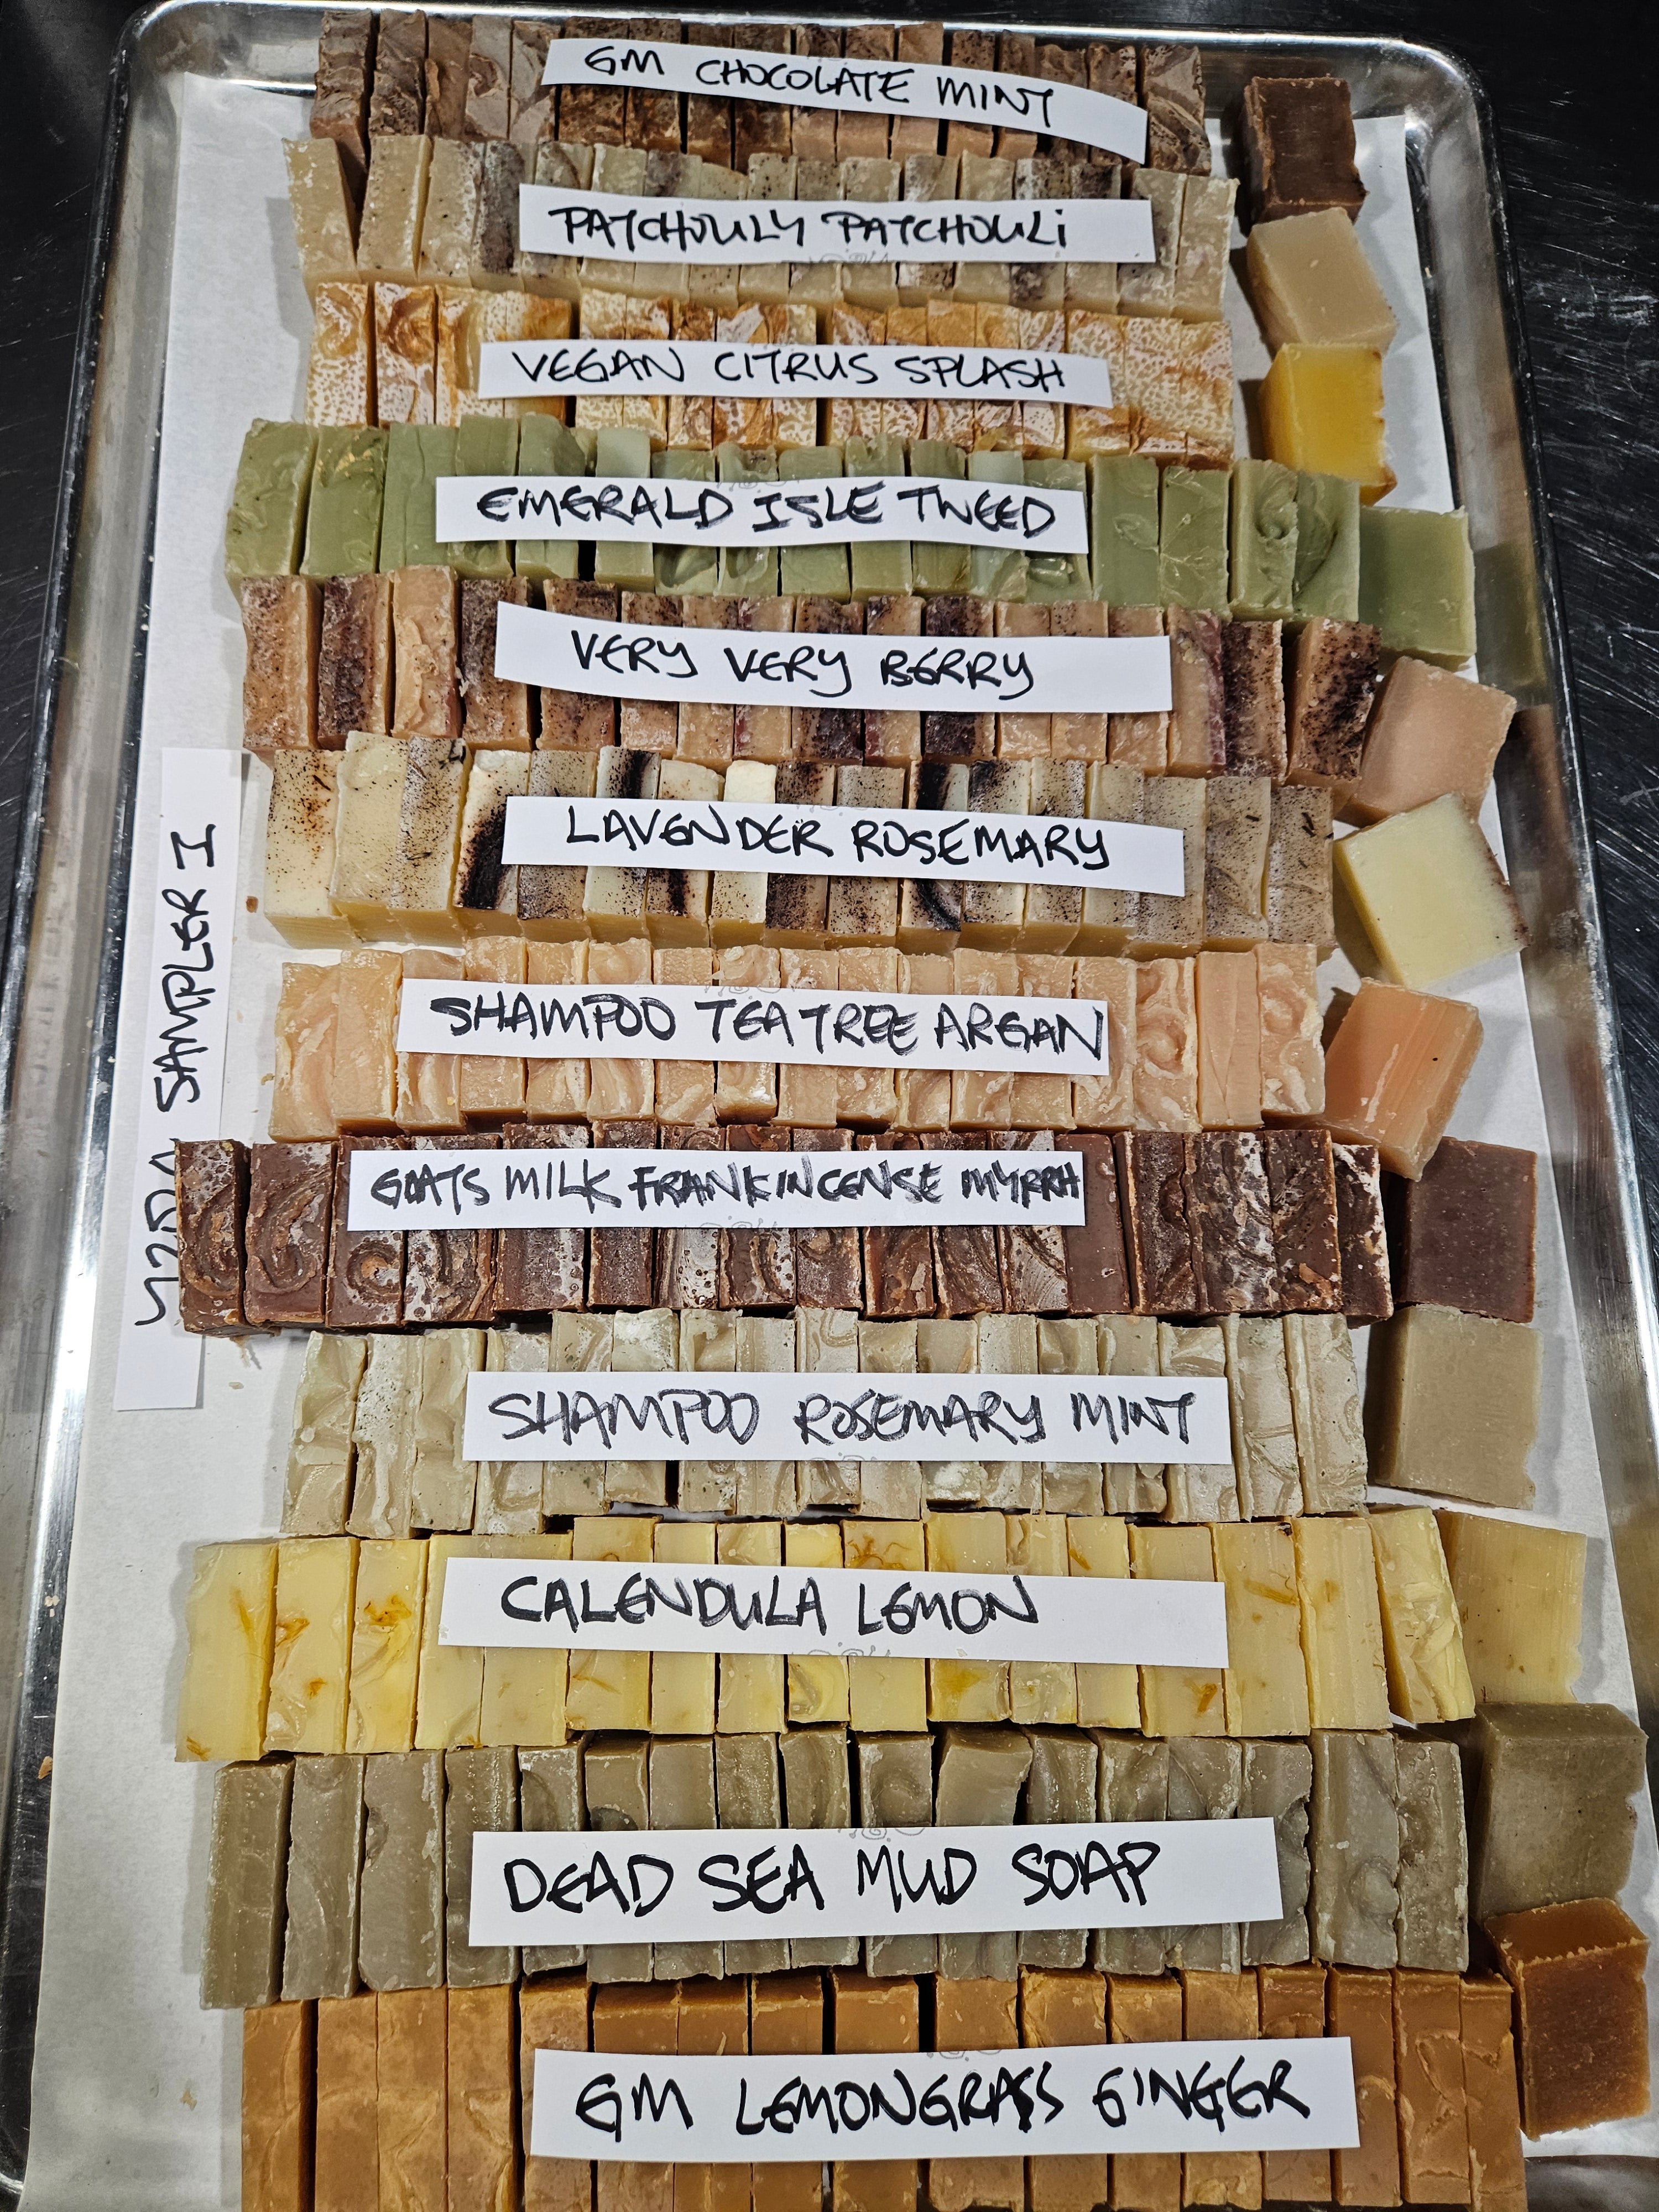 GM CHOCOLATE MINT
PATCHOULY PATCHOULI
VEGAN CITRUS SPLASH
EMERALD ISLE TWEED
VERY VERY BERRY
LAVENDER ROSEMARY
SHAMPOO TEA TREE ARGAN
GOATS MILK FRANKINCENSE MYRRH
SHAMPOO ROSEMARY MINT
CALENDULA LEMON
DEAD SEA MUD SOAP
GM LEMONGRASS GINGER
SAMPLER I